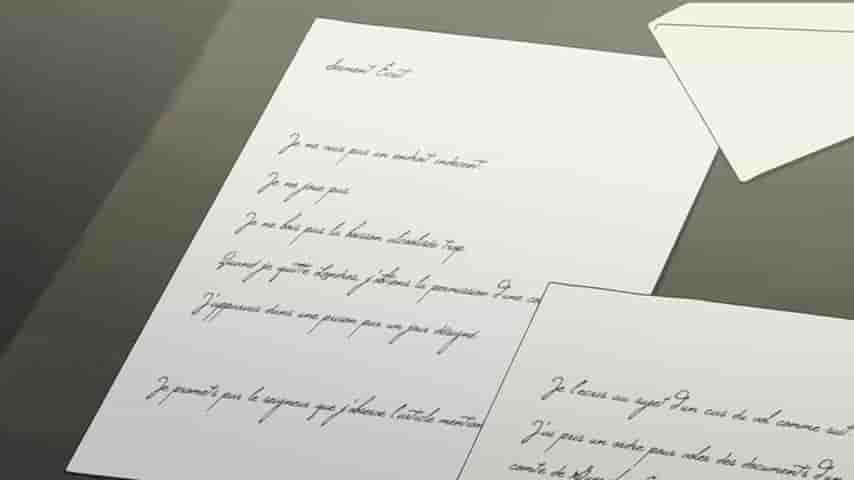 Serment Écrit
Je ne vais pas un endroit indécent.
Je ne joue pas
Je ne bois pas la boisson alcoolisée trop
Quand je quitte Londres, j'obtiens la permission d'une
J'apparais dans une prison par un jour désigné.
Je promets par le seigneur que j'observe l'article
Je l'écris au sujet d'un cas du vol comme suit
J'ai pris un ordre pour voler des documents d'un
comte de